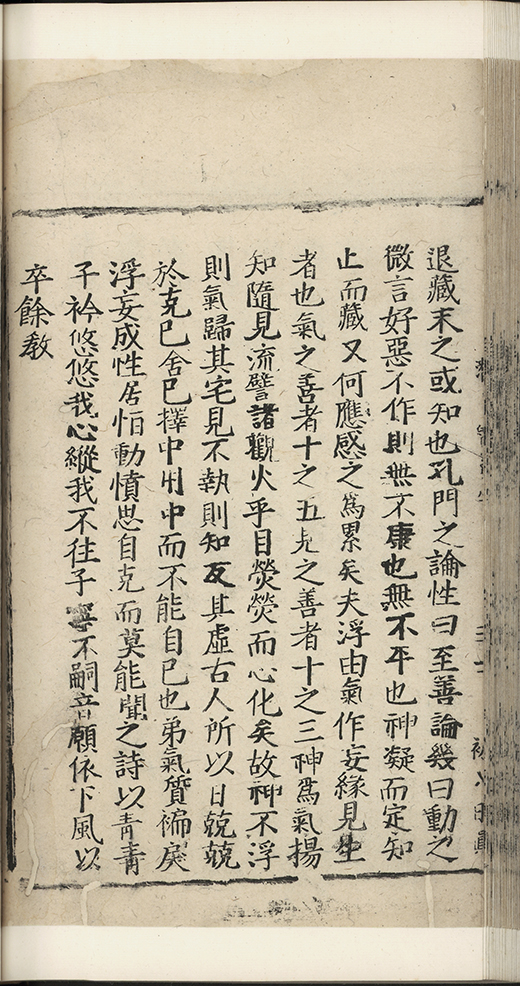 退藏末之或知也孔門之論性曰至善論幾曰動之
微言好惡不作則無不康也無不平也神凝而定知
止而藏又何應感之爲累矣夫浮由氣作妄緣見生
者也氣之善者十之五見之善者十之三神爲氣揚
知隨見流譬諸觀火乎目熒熒而心化矣故神不浮
則氣歸其宅見不執則知反其虛古人所以日兢兢
於克已舍已擇中用中而不能自已也弟氣質褊戾
浮妄成性居怕動憤思自克而莫能聞之詩以青青
子衿悠悠我心縱我不往子寧不嗣音願依下風以
卒餘教